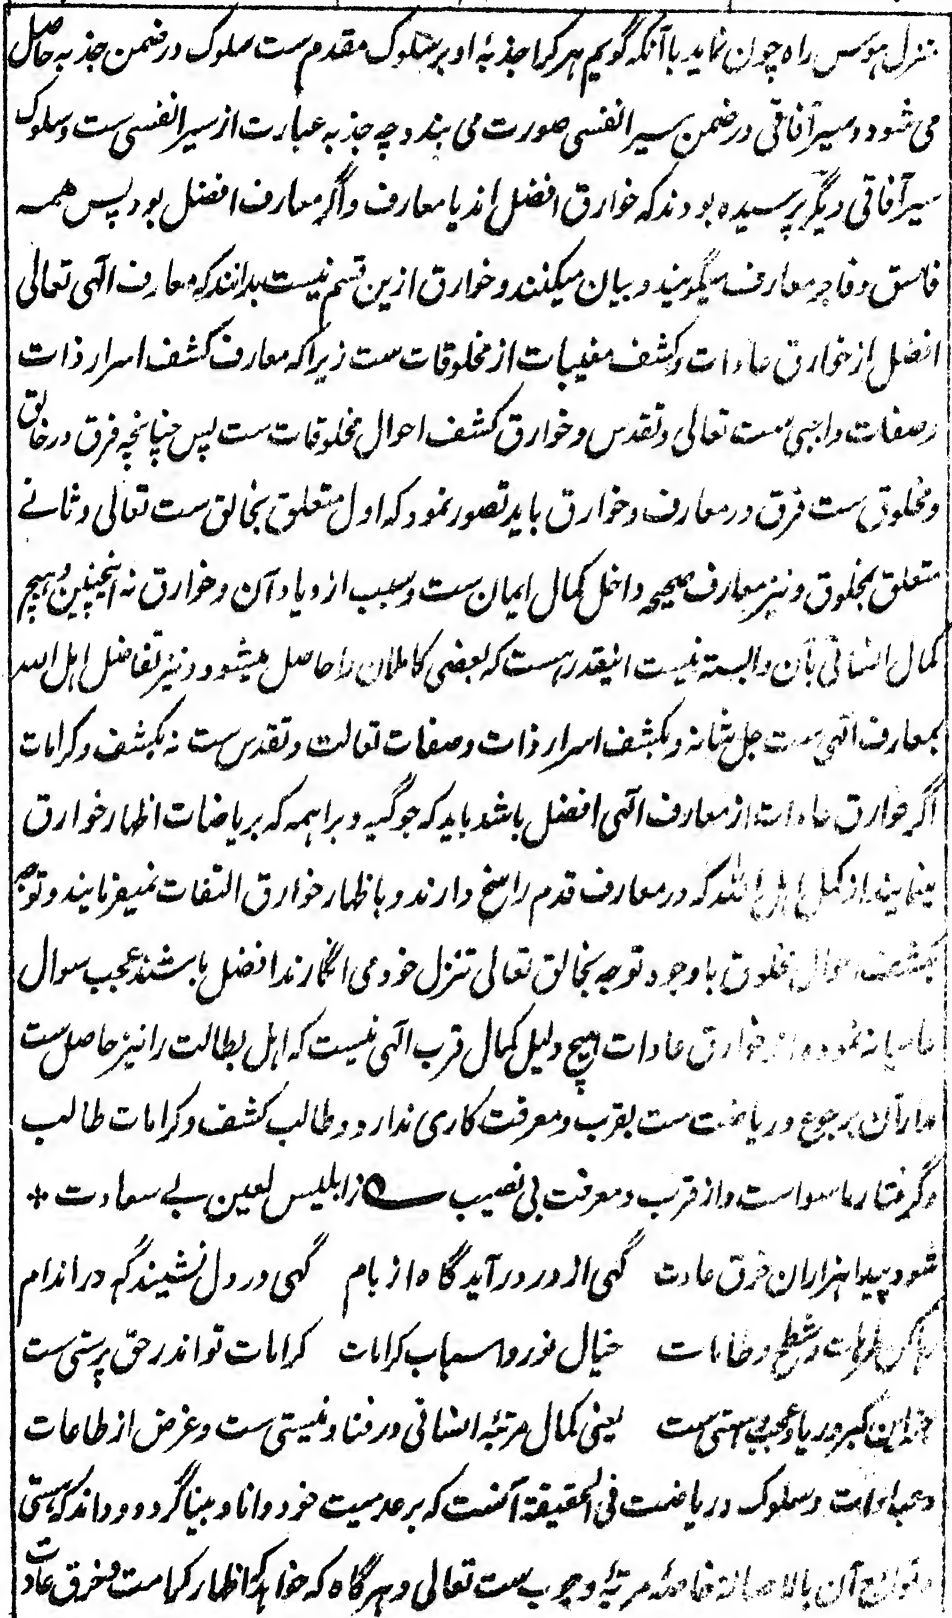 منزل ہوس راہ چون نماید با آنکہ گویم ہر کرا جذبۂ او بر سلوک مقدم ست سلوک در ضمن جذبہ حاصل
می شود و سیر آفاقی در ضمن سیر انفسی صورت می بندد چہ جذبہ عبارت از سیر انفسی ست و سلوک
سیر آفاقی دیگر پرسیدہ بودند کہ خوارق افضل اند یا معارف و اگر معارف افضل بود پس ہمہ
فاسق و فاجر معارف میگویند و بیان میکنند و خوارق ازین قسم نیست بدانند کہ معارف الٰہی تعالی
افضل از خوارق عادات و کشف مغیبات از مخلوقات ست زیرا کہ معارف کشف اسرار ذات
و صفات واجبی ست تعالی و تقدس و خوارق کشف احوال مخلوقات ست پس چنانچہ فرق در خالق
و مخلوق ست فرق در معارف و خوارق باید تصور نمود کہ اول متعلق بخالق ست تعالی و ثانے
متعلق بمخلوق و نیز معارف صحیحہ داخل کمال ایمان ست و سبب ازدیاد آن و خوارق نہ اینچنین و ہیچ
کمال انسانی بآن وابستہ نیست اینقدر ہست کہ بعضی کاملان را حاصل میشود و نیز تفاضل اہل اللہ
بمعارف الٰہی ست جل شانہ و بکشف اسرار ذات و صفات تعالت و تقدس ست نہ بکشف و کرامات
اگر خوارق عادات از معارف الٰہی افضل باشد باید کہ جوگیہ و براہمہ کہ بریاضات اظہار خوارق
مینمایند از کمل اہل اللہ کہ در معارف قدم راسخ دارند و باظہار خوارق التفات نمیفرمایند و توجہ
بکشف احوال مخلوق با وجود توجہ بخالق تعالی تنزل خود می انگارند افضل باشند عجب سوال
عامیانہ نمودہ اند خوارق عادات ہیچ دلیل کمال قرب الٰہی نیست کہ اہل بطالت را نیز حاصل ست
مدار آن بر جوع و ریاضت ست بقرب و معرفت کاری ندارد و طالب کشف و کرامات طالب
و گرفتار ماسوا است و از قرب و معرفت بی نصیب ؎ ز ابلیس لعین بے سعادت *
شود پیدا ہزاران خرق عادت گہی از در درآید گاہ از بام گہی در دل نشیند گہ در اندام
رہا کن ترہات و شطح و طامات خیال نور و اسباب کرامات کرامات تو اندر حق پرستی ست
جز این کبر و ریا و عجب و ہستی ست یعنی کمال مرتبۂ انسانی در فنا و نیستی ست و غرض از طاعات
و عبادات و سلوک و ریاضت فی الحقیقۃ آنست کہ بر عدمیت خود دانا و بینا گردد و داند کہ ہستی
و توابع آن بالاصالۃ خاصۂ مرتبۂ وجوب ست تعالی و ہر گاہ کہ خواہد کہ اظہار کرامت و خرق عادت